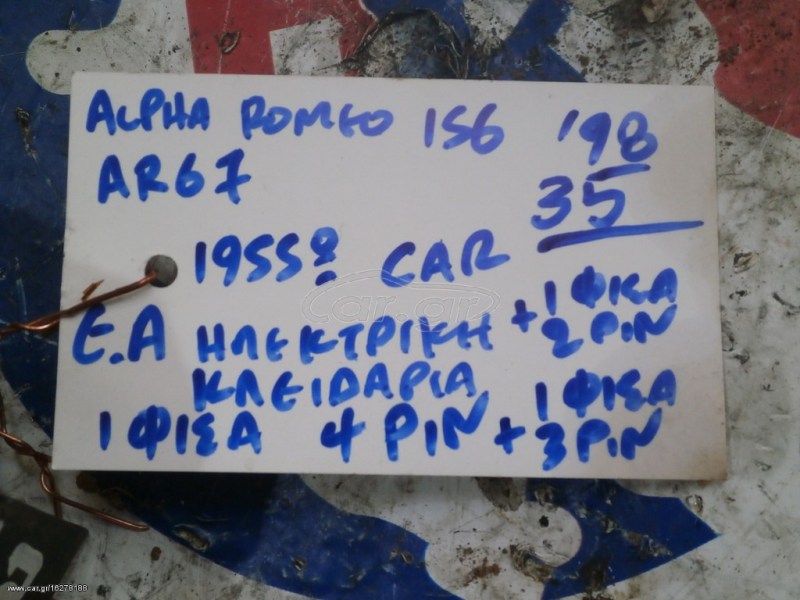 ALPHA ROMEO 156 '98
AR67 35
1955 CAR
E.A ΗΛΕΚΤΡΙΚΗ + 1 ΦΙΣΑ 2 PIN
ΚΛΕΙΔΑΡΙΑ
1 ΦΙΣΑ 4 PIN + 1 ΦΙΣΑ 3 PIN
car.gr
www.car.gr/16278188